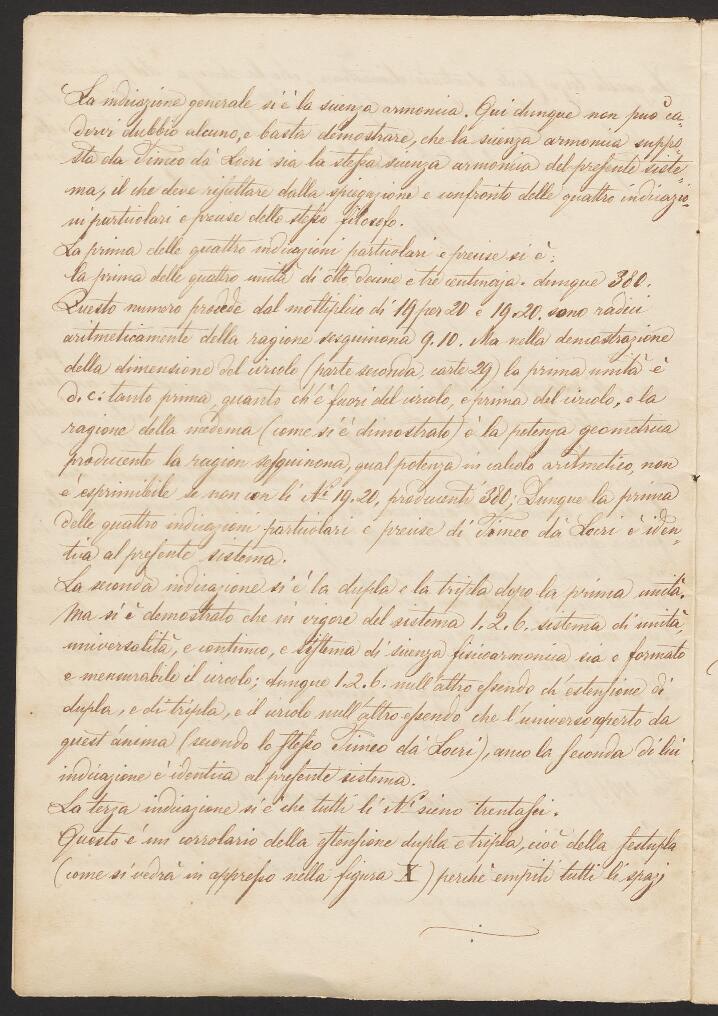 La indicazione generale si è la scienza armonica. Qui dunque non può ca-
dervi dubbio alcuno, e basta demostrare, che la scienza armonica suppo-
sta da Timeo da Locri sia la stessa scienza armonica del presente siste-
ma, il che deve risultare dalla spiegazione e confronto delle quattro indicazio-
ni particolari e precise dello stesso filosofo.
La prima delle quattro indicazioni particolari e precise si è:
la prima delle quattro unità di otto decine e tre centinaja. dunque 380.
Questo numero procede dal moltiplico di 19 per 20 e 19.20. sono radici
aritmeticamente della ragione sesquinona 9.10. Ma nella demostrazione
della dimensione del circolo (parte seconda, carte 29) la prima unità è
d.c: tanto prima, quanto ch'è fuori del circolo, e prima del circolo, e la
ragione della medema (come si è dimostrato) è la potenza geometrica
producente la ragion sesquinona, qual potenza in calcolo aritmetico, non
è esprimibile se non con li N.i 19.20, producenti 380; Dunque la prima
delle quattro indicazioni particolari e precise di Timeo da Locri è iden-
tica al presente sistema.
La seconda indicazione si è la dupla e la tripla dopo la prima unità.
Ma si è demostrato che in vigore del sistema 1.2.6. sistema di unità,
universalità, e continuo, e sistema di scienza fisicarmonica sia e formato
e mensurabile il circolo; dunque 1.2.6. null'altro essendo ch'estensione di
dupla, e di tripla, e il circolo null'altro essendo che l'universo aperto da
quest'anima (secondo lo stesso Timeo da Locri), anco la seconda di lui
indicazione è identica al presente sistema.
La terza indicazione si è che tutti li N.i sieno trentasei.
Questo è un corrolario della estensione dupla e tripla, cioè della sestupla
(come si vedrà in appresso nella figura X) perchè empiti tutti li spazj